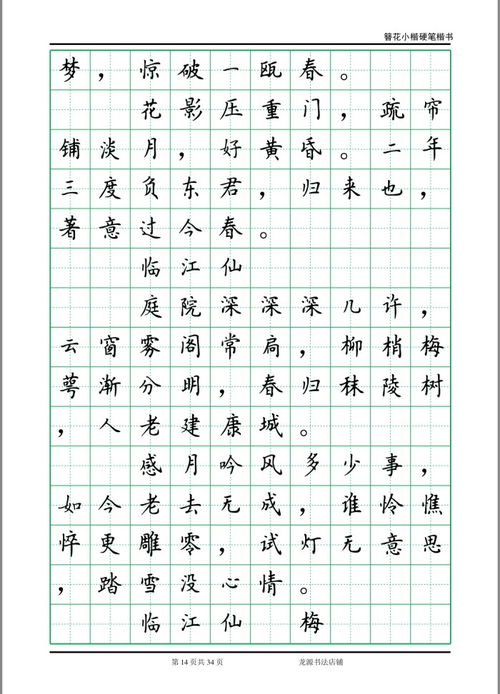 簪花小楷硬笔楷书
梦，惊破一瓯春。
花影压重门，疏帘
铺淡月，好黄昏。二年
三度负东君，归来也，
著意过今春。
临江仙
庭院深深深几许，
云窗雾阁常扃，柳梢梅
萼渐分明，春归秣陵树
，人老建康城。
感月吟风多少事，
如今老去无成，谁怜憔
悴更雕零，试灯无意思
，踏雪没心情。
临江仙 梅
第 14 页共 34 页 龙源书法店铺